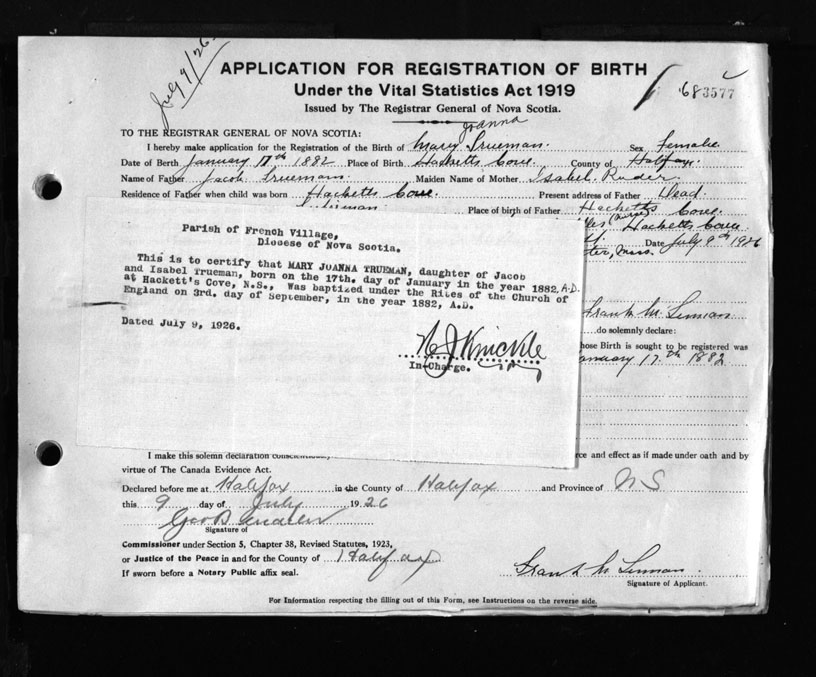 July 9/26
APPLICATION FOR REGISTRATION OF BIRTH
Under the Vital Statistics Act 1919
683577
Issued by The Registrar General of Nova Scotia.
Joanna
TO THE REGISTRAR GENERAL OF NOVA SCOTIA:
I hereby make application for the Registration of the Birth of Mary Trueman. Sex Female
Date of Birth January 17th 1882 Place of Birth Hacketts Cove. County of Halifax
Name of Father Jacob Trueman. Maiden Name of Mother Isabel
Residence of Father when child was born Hacketts Cove. Present address of Father Dead
Place of birth of Father Hacketts Cove.
Hacketts Cove
Date July 9th 1926
Mass.
Parish of French Village,
Diocese of Nova Scotia.
This is to certify that MARY JOANNA TRUEMAN, daughter of Jacob
and Isabel Trueman, born on the 17th. day of January in the year 1882, A.D.
at Hackett's Cove, N.S., Was baptized under the Rites of the Church of
England on 3rd. day of September, in the year 1882, A.D.
Dated July 9, 1926.
In-Charge.
Frank
do solemnly declare:
hose Birth is sought to be registered was
anuary 17th 1882
I make this solemn declaration rce and effect as if made under oath and by
virtue of The Canada Evidence Act.
Declared before me at Halifax in the County of Halifax and Province of N S
this 9 day of July 1926
Signature of
Commissioner under Section 5, Chapter 38, Revised Statutes, 1923,
or Justice of the Peace in and for the County of Halifax
If sworn before a Notary Public affix seal.
Frank
Signature of Applicant.
For Information respecting the filling out of this Form, see Instructions on the reverse side.